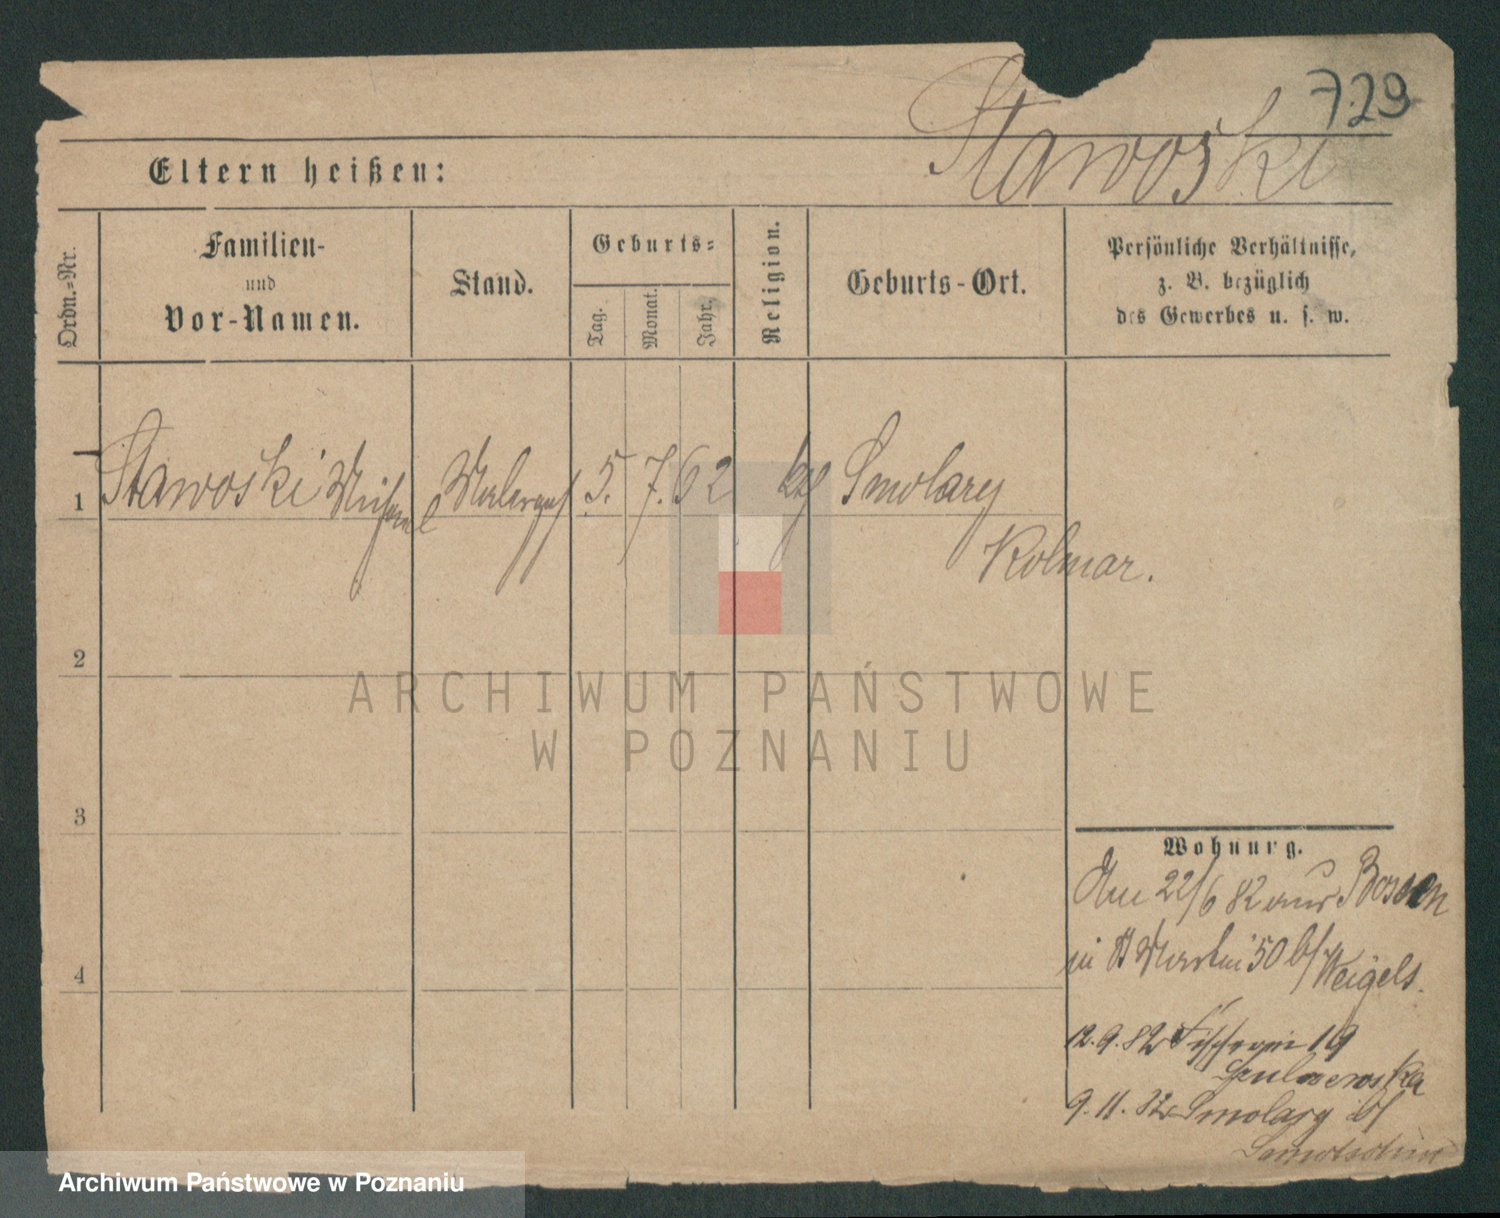 729
Stawoski
Eltern heißen:
Ordn.-Nr.
Familien-
und
Vor-Namen.
Stand.
Geburts-
Tag.
Monat.
Jahr.
Religion.
Geburts-Ort.
Persönliche Verhältnisse,
z. B. bezüglich
des Gewerbes u. s. w.
1 Stawoski Michael 5. 7. 62 kth Smolary
Kolmar.
2
3
4
ARCHIWUM PAŃSTWOWE
W POZNANIU
Wohnung.
22/6 82 aus
in St Martin 50 b/ Weigels.
12.9.82 Fischerei 19
9.11.82 Smolary b/
Archiwum Państwowe w Poznaniu